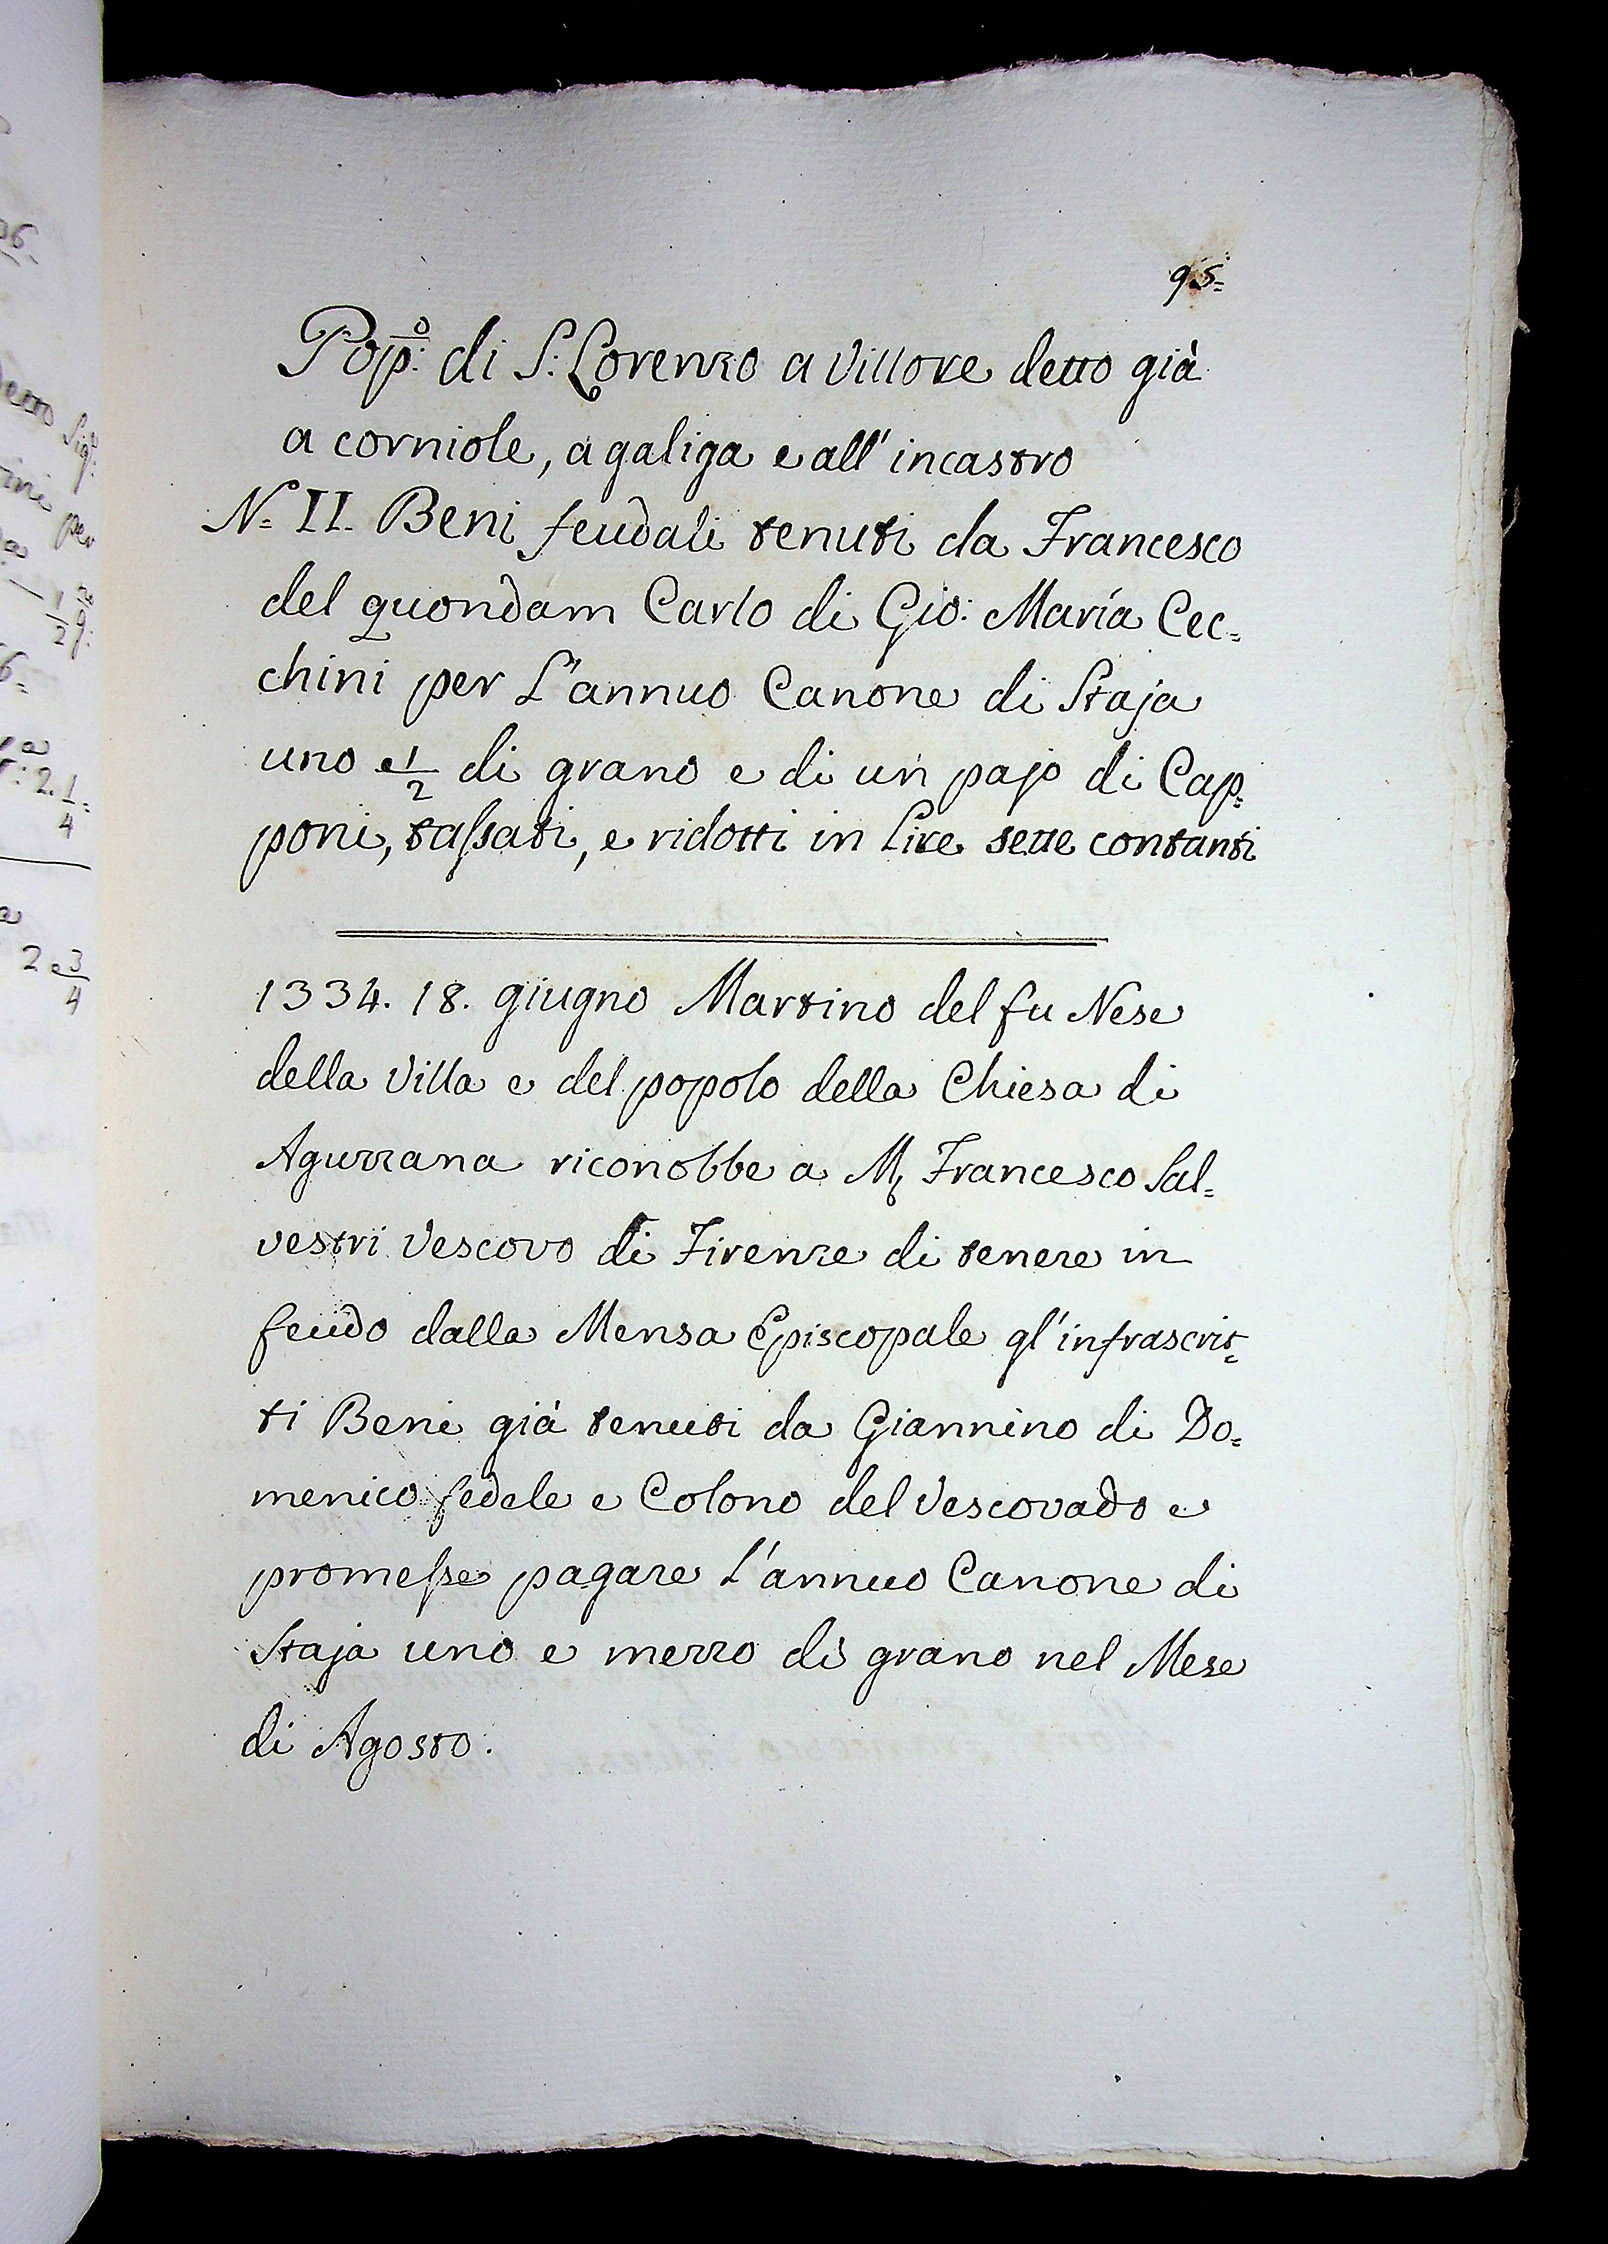 95=
Pop:º di S: Lorenzo a Villore detto già
a corniole, a galiga e all' incastro
N= II. Beni feudali tenuti da Francesco
del quondam Carlo di Gio: Maria Cec=
chini per L'annuo Canone di Staja
uno e 1/2 di grano e di un pajo di Cap=
poni, tassati, e ridotti in Lire sette contanti
1334. 18. giugno Martino del fu Nese
della Villa e del popolo della Chiesa di
Aguzzana riconobbe a M, Francesco Sal=
vestri Vescovo di Firenze di tenere in
feudo dalla Mensa Episcopale gl'infrascrit=
ti Beni già tenuti da Giannino di Do=
menico fedele e Colono del Vescovado e
promesse pagare L'annuo Canone di
Staja uno e mezzo di grano nel Mese
di Agosto.